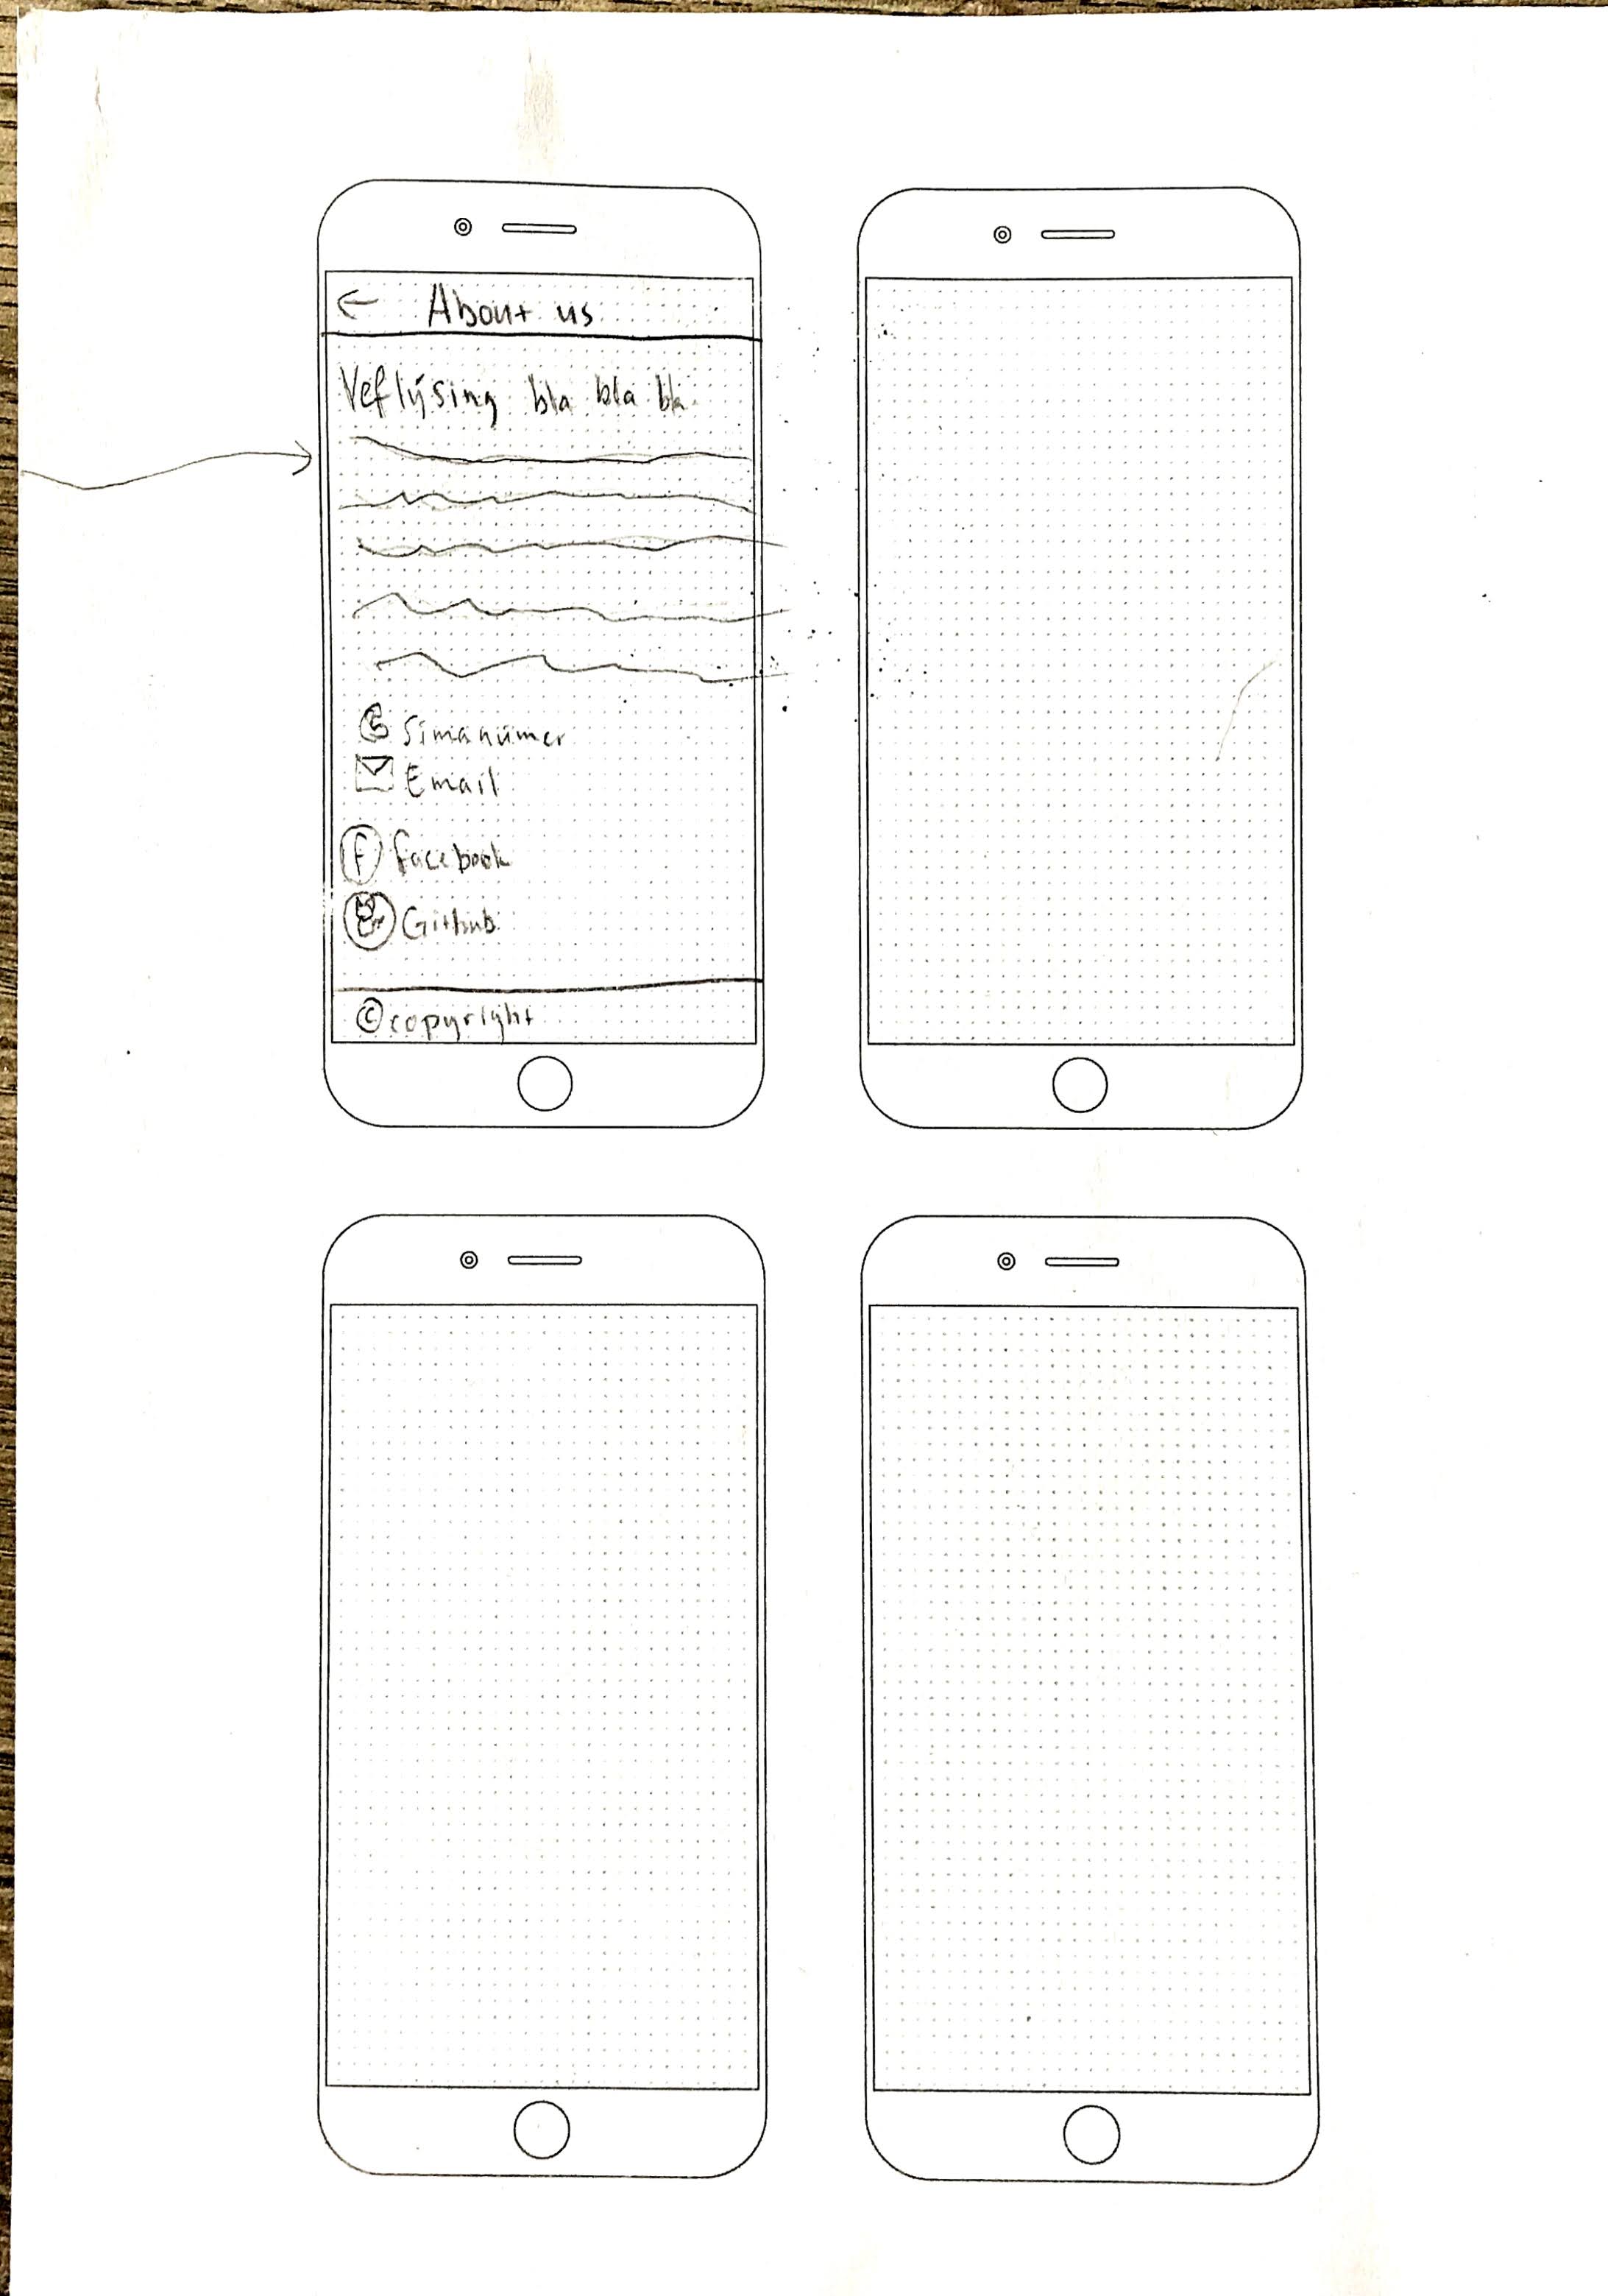 ← About us
Veflýsing bla bla bla
Símanúmer
Email
f facebook
Github
© copyright